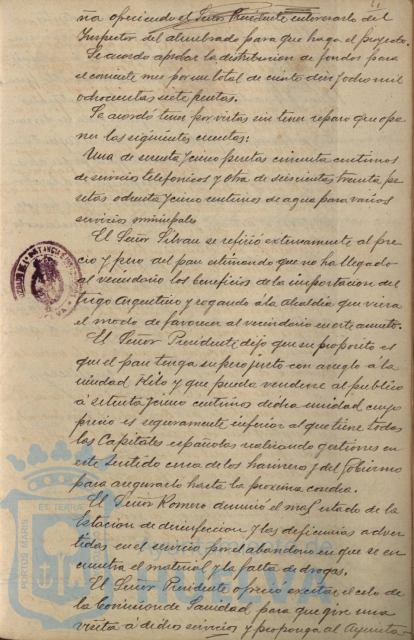 ña ofreciendo el Señor Presidente interesarlo del
Inspector del alumbrado para que haga el proyecto.
Se acordó aprobar la distribucion de fondos para
el corriente mes por un total de ciento diez y ocho mil
ochocientas siete pesetas.
Se acordó tener por vistas sin tener reparo que opo-
ner las siguientes cuentas:
Una de cuenta y cinco pesetas cincuenta centimos
de servicio telefonicos y otra de seiscientas treinta pe
setas ochenta y cinco centimos de agua para varios
servicios municipales
El Señor Silvan se refirió extensamente al pre
cio y peso del pan estimando que no ha llegado
al vecindario los beneficios de la importacion del
trigo Argentino y rogando á la Alcaldia que viera
el modo de favorecer al vecindario en este asunto.
El Señor Presidente dijo que su proposito es
que el pan tenga su peso justo con arreglo á la
unidad kilo y que pueda venderse al publico
á setenta y cinco centimos dicha unidad cuyo
precio es seguramente inferior al que tiene todas
las Capitales españolas realizando gestiones en
este sentido cerca de los harineros y del Gobierno
para asegurarlo hasta la proxima cosecha.
El Señor Romero denunció el mal estado de la
Estacion de desinfeccion y las deficiencias adver
tidas en el servicio por el abandono en que se en
cuentra el material y la falta de drogas.
El Señor Presidente ofreció excitar el celo de
la Comision de Sanidad para que gire una
visita á dichos servicios y proponga al Ayunta
PORTUS MARIS
ET TERRAE
HUELVA